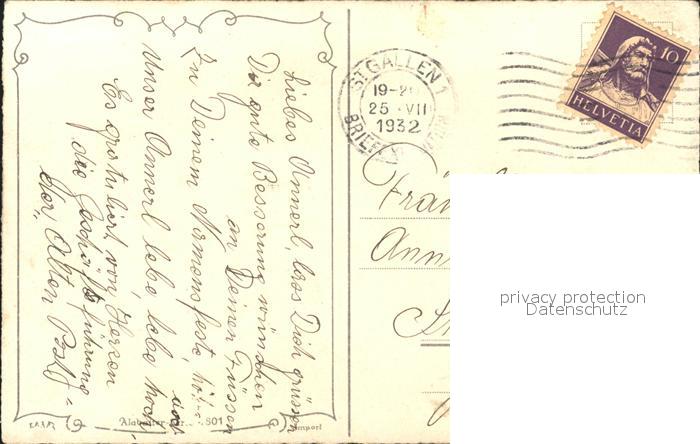 Liebes Annerl, lass Dich grüssen
Die gute Besserung wünschen
an Deinen Füssen
Zu Deinem Namensfeste
Unser Annerl lebe, lebe hoch!
Es gratuliert von Herzen
die Geschäftsführung
der "Alten Post"
ST. GALLEN 1
19-20
25. VII
1932
BRIEF
10
HELVETIA
Fräu
Ann
privacy protection
Datenschutz
801
Import